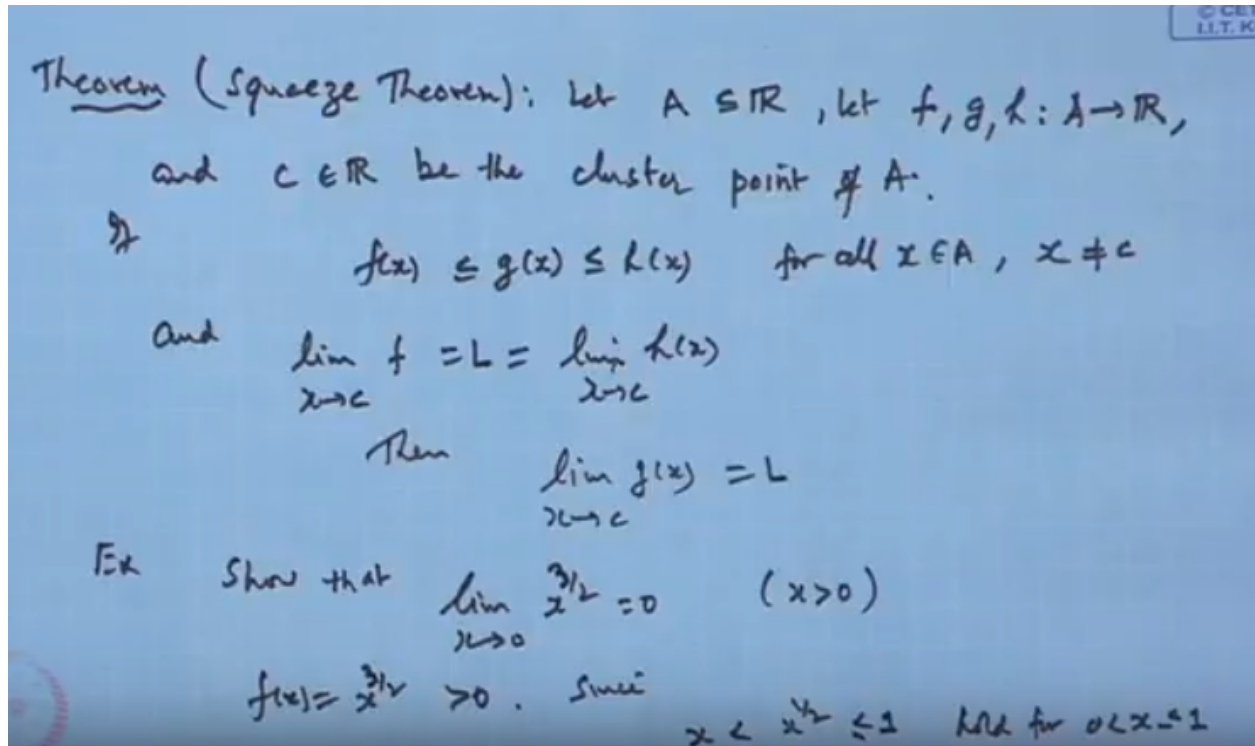 © CET
I.I.T. K
Theorem (Squeeze Theorem): Let A ⊆ ℝ, let f, g, h : A → ℝ,
and c ∈ ℝ be the cluster point of A.
If
f(x) ≤ g(x) ≤ h(x) for all x ∈ A, x ≠ c
and lim f = L = lim h(x)
x→c x→c
Then lim g(x) = L
x→c
Ex Show that lim x^{3/2} = 0 (x>0)
x→0
f(x) = x^{3/2} > 0. Since
x < x^{1/2} ≤ 1 hold for 0<x≤1